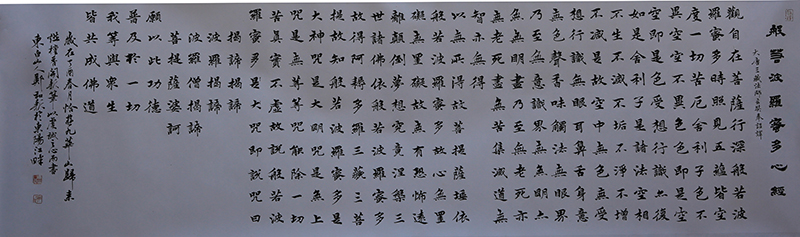 般若波羅蜜多心經
大唐三藏法師玄奘奉詔譯
觀自在菩薩行深般若波
羅蜜多時照見五蘊皆空
度一切苦厄舍利子色不
異空空不異色色即是空
空即是色受想行識亦復
如是舍利子是諸法空相
不生不滅不垢不淨不增
不減是故空中無色無受
想行識無眼耳鼻舌身意
無色聲香味觸法無眼界
乃至無意識界無無明亦
無無明盡乃至無老死亦
無老死盡無苦集滅道無
智亦無得
以無所得故菩提薩埵依
般若波羅蜜多故心無罣
礙無罣礙故無有恐怖遠
離顛倒夢想究竟涅槃三
世諸佛依般若波羅蜜多
故得阿耨多羅三藐三菩
提故知般若波羅蜜多是
大神咒是大明咒是無上
咒是無等等咒能除一切
苦真實不虛故說般若波
羅蜜多咒即說咒曰
揭諦揭諦
波羅揭諦
波羅僧揭諦
菩提薩婆訶
願以此功德
普及於一切
我等與眾生
皆共成佛道
歲在丁酉春月九華山歸來
以虔誠之心而書
東白山人鄭於東陽江畔